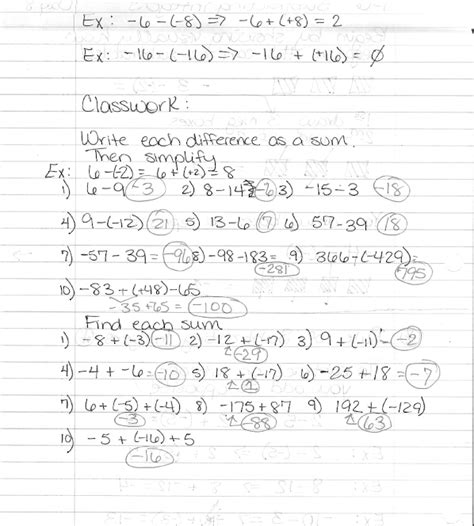 Ex: -6-(-8) => -6+(+8) = 2
Ex: -16-(-16) => -16 + (+16) = ∅
Classwork:
Write each difference as a sum.
Then simplify
Ex: 6-(-2) = 6+(+2) = 8
1) 6-9 -3 2) 8-14 = -6 3) -15-3 -18
4) 9-(-12) 21 5) 13-6 7 6) 57-39 18
7) -57-39 = -96 8) -98-183 = -281 9) 366-(-429) = 795
10) -83+(+48)-65
-35+65 = -100
Find each sum
1) -8+(-3) -11 2) -12+(-17) -29 3) 9+(-11) = -2
4) -4+-6 = -10 5) 18+(-17) 1 6) -25+18 = -7
7) 6+(-5)+(-4) -3 8) -175+87 -88 9) 192+(-129) 63
10) -5+(-16)+5
-16